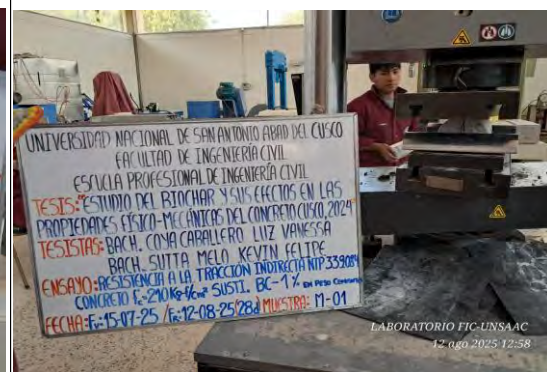 UNIVERSIDAD NACIONAL DE SAN ANTONIO ABAD DEL CUSCO
FACULTAD DE INGENIERÍA CIVIL
ESCUELA PROFESIONAL DE INGENIERÍA CIVIL
TESIS: "ESTUDIO DEL BIOCHAR Y SUS EFECTOS EN LAS
PROPIEDADES FÍSICO-MECÁNICAS DEL CONCRETO CUSCO, 2024"
TESISTAS: BACH. COYA CABALLERO LUZ VANESSA
BACH. SUTTA MELO KEVIN FELIPE
ENSAYO: RESISTENCIA A LA TRACCIÓN INDIRECTA NTP 339.084
CONCRETO f'c=210Kg-f/cm² SUSTI. BC-1% EN PESO
FECHA: Fv:15-07-25 /Fr:12-08-25(28d) MUESTRA: M-01
LABORATORIO FIC-UNSAAC
12 ago 2025 12:58